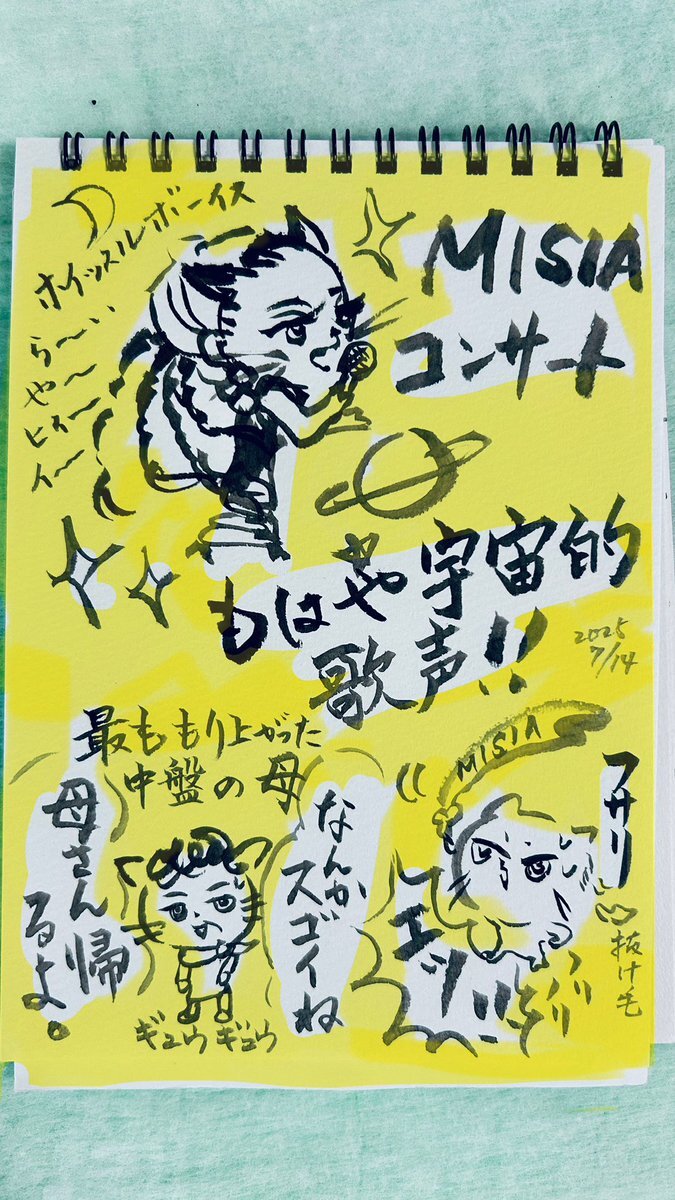 MISIA
コンサート
ホイッスルボーイス
ら〜い
や〜
ヒィ〜
イ〜
もはや宇宙的
歌声!!
2025
7/14
最ももり上がった
中盤の母
なんか
スゴイね
母さん帰
るよ。
ギュウギュウ
MISIA
フサリ
抜け毛
エッ!!